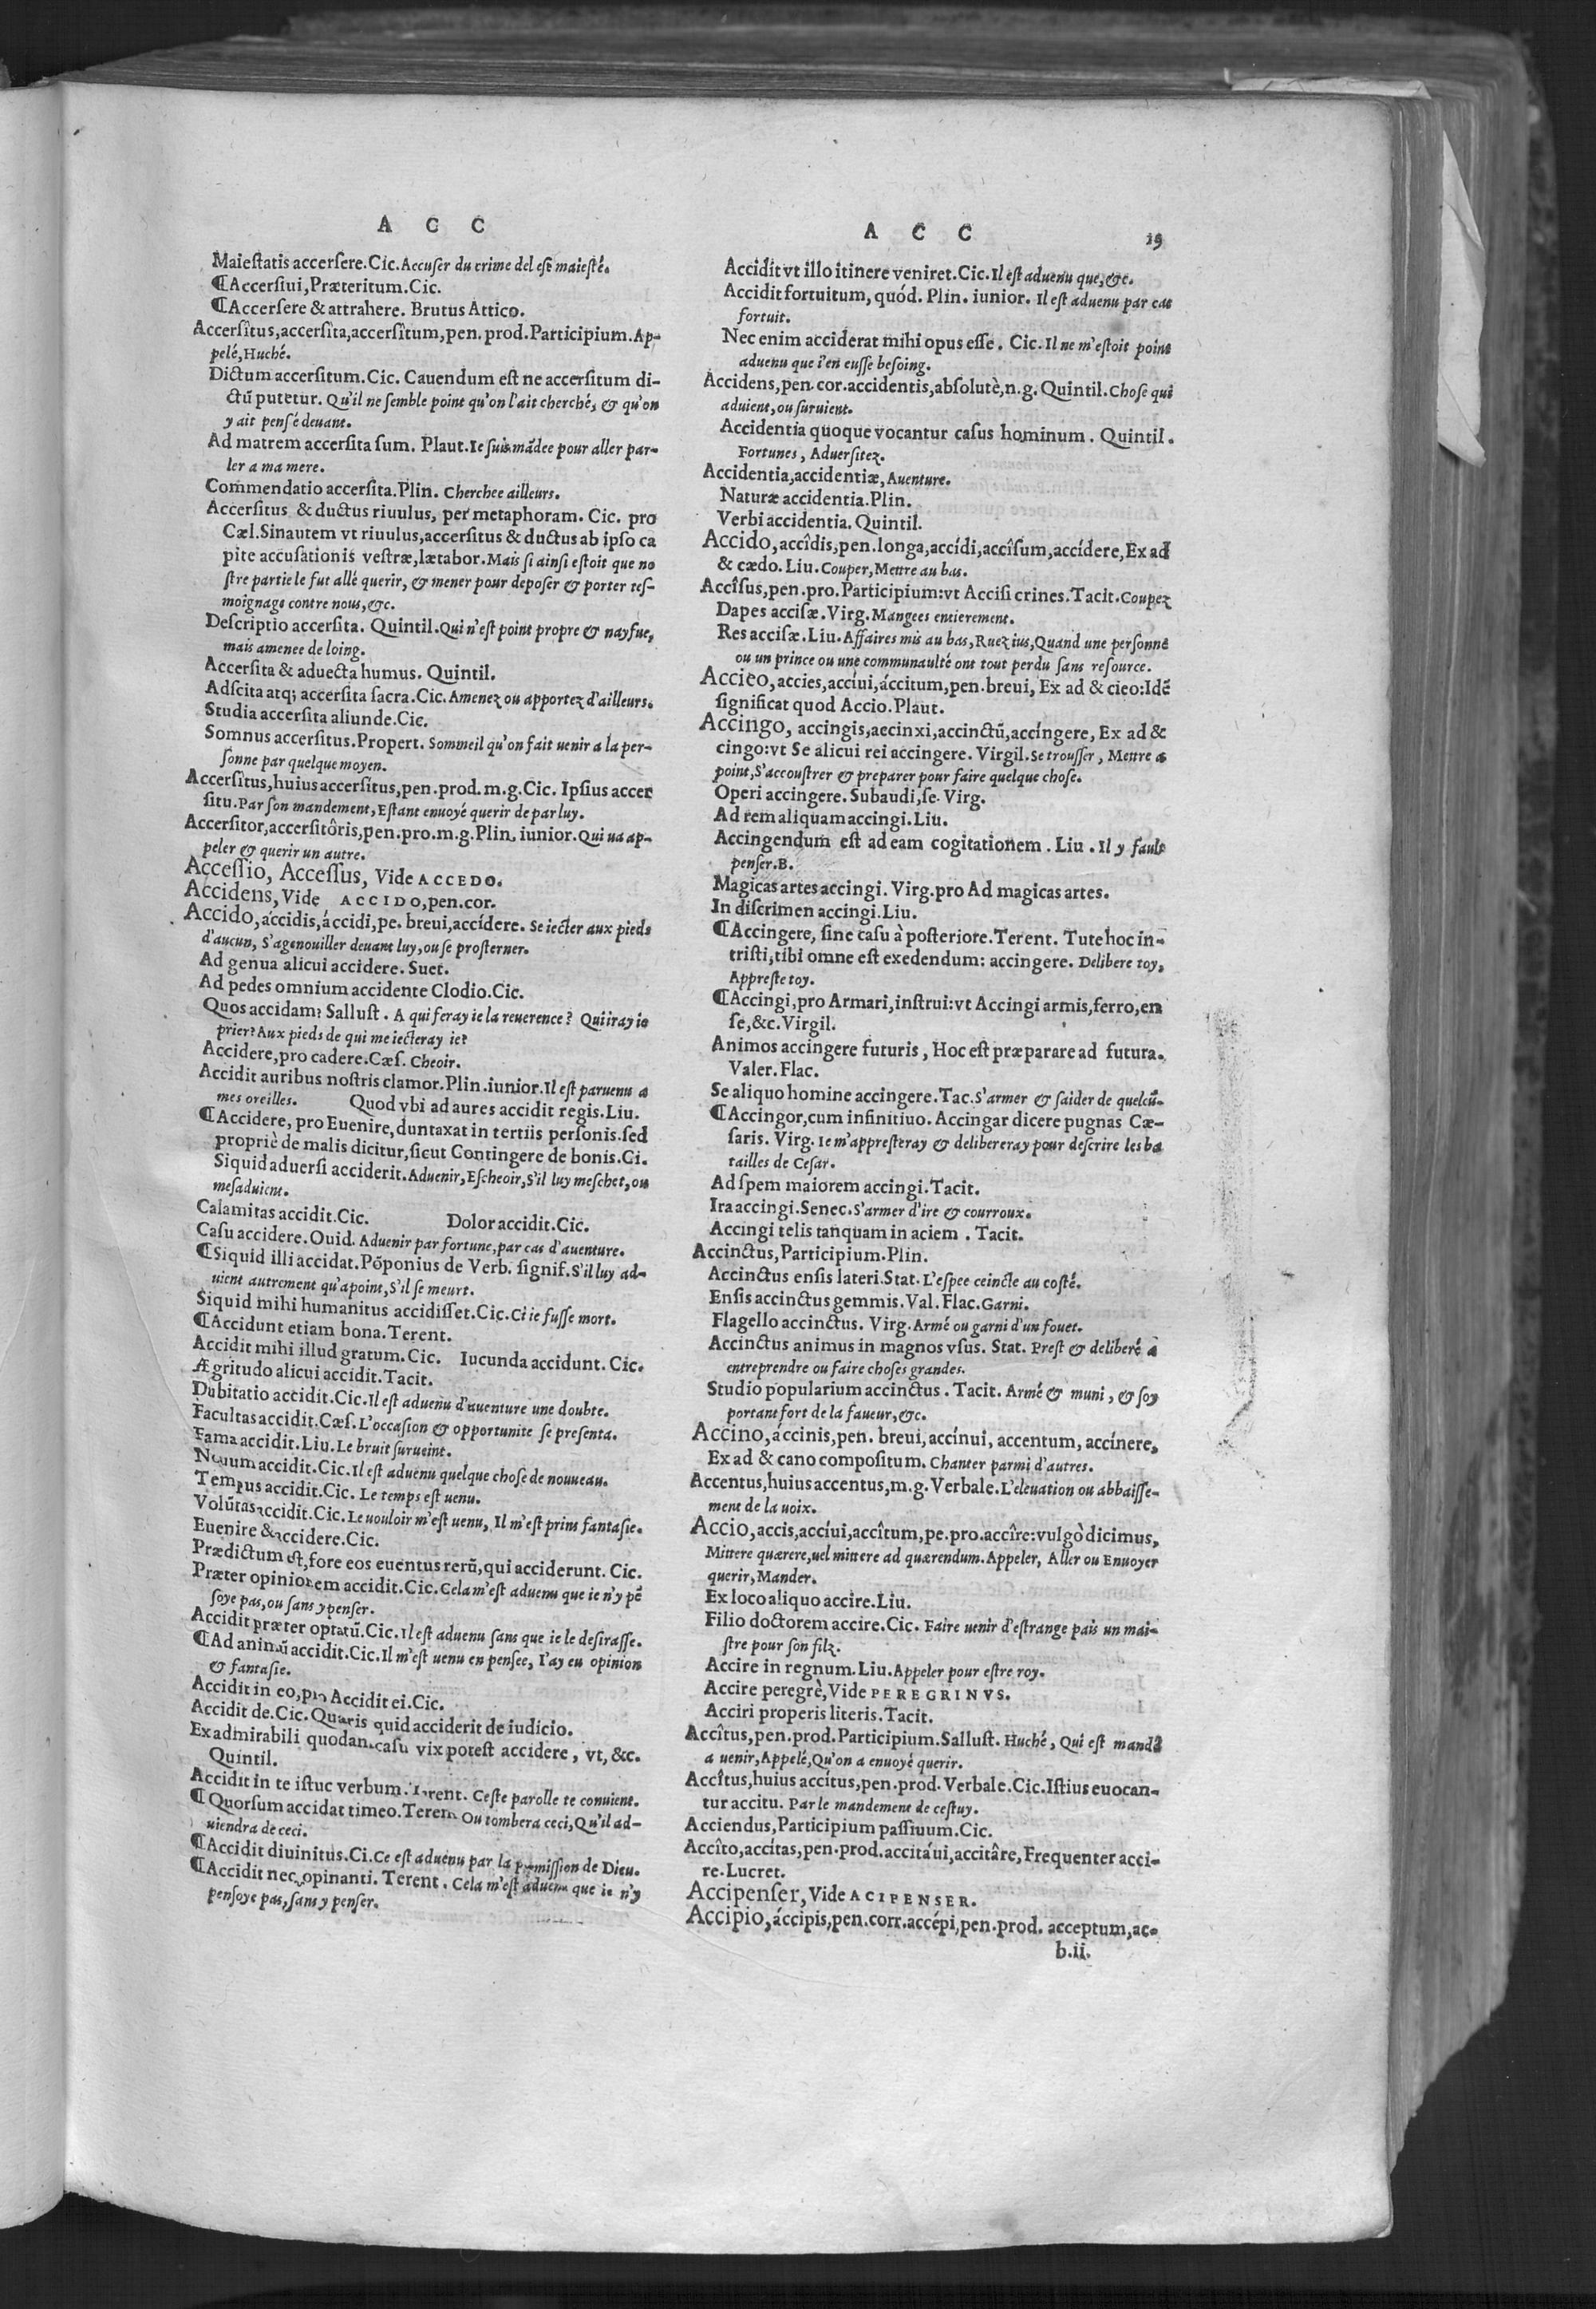 A C C
Maiestatis accersere.Cic.Accuser du crime del ese maiesté.
¶Accersiui, Præteritum.Cic.
¶Accersere & attrahere. Brutus Attico.
Accersîtus,accersîta,accersîtum,pen.prod.Participium.Ap-
pelé,Huché.
Dictum accersitum.Cic. Cauendum est ne accersitum di-
ctũ putetur. Qu'il ne semble point qu'on l'ait cherché, & qu'on
y ait pensé deuant.
Ad matrem accersita sum. Plaut.Ie suis mãdee pour aller par-
ler a ma mere.
Commendatio accersita.Plin. Cherchee ailleurs.
Accersitus & ductus riuulus, per metaphoram. Cic. pro
Cæl.Sinautem vt riuulus,accersitus & ductus ab ipso ca
pite accusationis vestræ,lætabor.Mais si ainsi estoit que no
stre partie le fut allé querir, & mener pour deposer & porter tes-
moignage contre nous,&c.
Descriptio accersita. Quintil.Qui n'est point propre & nayfue,
mais amenee de loing.
Accersita & aduecta humus. Quintil.
Adscita atq; accersita sacra.Cic.Amenez ou apportez d'ailleurs.
Studia accersita aliunde.Cic.
Somnus accersitus.Propert. Sommeil qu'on fait uenir a la per-
sonne par quelque moyen.
Accersîtus,huius accersitus,pen.prod.m.g.Cic. Ipsius accer
situ.Par son mandement,Estant enuoyé querir de par luy.
Accersitor,accersitôris,pen.pro.m.g.Plin.iunior.Qui ua ap-
peler & querir un autre.
Accessio, Accessus, Vide ACCEDO.
Accidens, Vide ACCIDO,pen.cor.
Accido,áccidis,áccidi,pe.breui,accídere. Se iecter aux pieds
d'aucun, S'agenouiller deuant luy,ou se prosterner.
Ad genua alicui accidere. Suet.
Ad pedes omnium accidente Clodio.Cic.
Quos accidam? Sallust. A qui feray ie la reuerence? Qui iray ie
prier?Aux pieds de qui me iecteray ie?
Accidere,pro cadere.Cæs. Cheoir.
Accidit auribus nostris clamor.Plin.iunior.Il est paruenu a
mes oreilles. Quod vbi ad aures accidit regis.Liu.
¶Accidere, pro Euenire,duntaxat in tertiis personis.sed
propriè de malis dicitur,sicut Contingere de bonis.Ci.
Siquid aduersi acciderit.Aduenir,Escheoir,S'il luy meschet,ou
mesaduient.
Calamitas accidit.Cic. Dolor accidit.Cic.
Casu accidere.Ouid. Aduenir par fortune,par cas d'auenture.
¶Siquid illi accidat.Põponius de Verb. signif.S'il luy ad-
uient autrement qu'apoint,S'il se meurt.
Siquid mihi humanitus accidisset.Cic.Ci ie fusse mort.
¶Accidunt etiam bona.Terent.
Accidit mihi illud gratum.Cic. Iucunda accidunt. Cic.
Ægritudo alicui accidit.Tacit.
Dubitatio accidit.Cic.Il est aduenu d'auenture une doubte.
Facultas accidit.Cæs.L'occasion & opportunite se presenta.
Fama accidit.Liu.Le bruit surueint.
Nouum accidit.Cic.Il est aduenu quelque chose de nouueau.
Tempus accidit.Cic. Le temps est uenu.
Volũtas accidit.Cic.Le uouloir m'est uenu, Il m'est prins fantasie.
Euenire & accidere.Cic.
Prædictum est,fore eos euentus rerũ,qui acciderunt. Cic.
Præter opinionem accidit.Cic.Cela m'est aduenu que ie n'y pẽ
soye pas,ou sans y penser.
Accidit præter optatũ.Cic.Il est aduenu sans que ie le desirasse.
¶Ad animũ accidit.Cic.Il m'est uenu en pensee, I'ay eu opinion
& fantasie.
Accidit in eo,pro Accidit ei.Cic.
Accidit de.Cic. Quæris quid acciderit de iudicio.
Ex admirabili quodam casu vix potest accidere, vt, &c.
Quintil.
Accidit in te istuc verbum. Terent. Ceste parolle te conuient.
¶Quorsum accidat timeo.Teren. Ou tombera ceci,Qu'il ad-
uiendra de ceci.
¶Accidit diuinitus.Ci.Ce est aduenu par la permission de Dieu.
¶Accidit nec opinanti. Terent. Cela m'est aduenu que ie n'y
pensoye pas,sans y penser.
A C C 19
Accidit vt illo itinere veniret.Cic.Il est aduenu que,&c.
Accidit fortuitum, quód. Plin. iunior. Il est aduenu par cas
fortuit.
Nec enim acciderat mihi opus esse. Cic.Il ne m'estoit point
aduenu que i'en eusse besoing.
Accidens,pen.cor.accidentis,absolutè,n.g. Quintil.Chose qui
aduient,ou suruient.
Accidentia quoque vocantur casus hominum. Quintil.
Fortunes, Aduersitez.
Accidentia,accidentiæ, Auenture.
Naturæ accidentia.Plin.
Verbi accidentia. Quintil.
Accido,accîdis,pen.longa,accídi,accîsum,accídere,Ex ad
& cædo. Liu. Couper,Mettre au bas.
Accîsus,pen.pro.Participium:vt Accisi crines.Tacit.Coupez
Dapes accisæ.Virg.Mangees entierement.
Res accisæ.Liu.Affaires mis au bas,Ruez ius,Quand une personne
ou un prince ou une communaulté ont tout perdu sans resource.
Accieo,accies,accíui,áccitum,pen.breui, Ex ad & cieo:Idẽ
significat quod Accio.Plaut.
Accingo, accingis,aecinxi,accinctũ,accíngere, Ex ad &
cingo:vt Se alicui rei accingere. Virgil.Se trousser, Mettre a
point,S'accoustrer & preparer pour faire quelque chose.
Operi accingere. Subaudi,se. Virg.
Ad rem aliquam accingi.Liu.
Accingendum est ad eam cogitationem. Liu. Il y fault
penser.B.
Magicas artes accingi. Virg.pro Ad magicas artes.
In discrimen accingi.Liu.
¶Accingere, sine casu à posteriore.Terent. Tute hoc in-
tristi,tibi omne est exedendum: accingere. Delibere toy,
Appreste toy.
¶Accingi,pro Armari,instrui:vt Accingi armis,ferro,en
se,&c.Virgil.
Animos accingere futuris, Hoc est præparare ad futura.
Valer. Flac.
Se aliquo homine accingere.Tac.S'armer & saider de quelcũ-
¶Accingor,cum infinitiuo. Accingar dicere pugnas Cæ-
saris. Virg. Ie m'appresteray & delibereray pour descrire les ba
tailles de Cesar.
Ad spem maiorem accingi.Tacit.
Ira accingi.Senec.S'armer d'ire & courroux.
Accingi telis tanquam in aciem. Tacit.
Accinctus,Participium.Plin.
Accinctus ensis lateri.Stat.L'espee ceincte au costé.
Ensis accinctus gemmis. Val. Flac.Garni.
Flagello accinctus. Virg.Armé ou garni d'un fouet.
Accinctus animus in magnos vsus. Stat. Prest & deliberé a
entreprendre ou faire choses grandes.
Studio popularium accinctus. Tacit. Armé & muni, & soy
portant fort de la faueur,&c.
Accino,áccinis,pen. breui,accínui, accentum, accínere,
Ex ad & cano compositum. Chanter parmi d'autres.
Accentus,huius accentus,m.g. Verbale.L'eleuation ou abbaisse-
ment de la uoix.
Accio,accis,accíui,accîtum,pe.pro.accîre:vulgò dicimus,
Mittere quærere,uel mittere ad quærendum.Appeler, Aller ou Enuoyer
querir,Mander.
Ex loco aliquo accire.Liu.
Filio doctorem accire.Cic. Faire uenir d'estrange païs un mai-
stre pour son filz.
Accire in regnum.Liu.Appeler pour estre roy.
Accire peregrè,Vide PEREGRINVS.
Acciri properis literis.Tacit.
Accîtus,pen.prod.Participium.Sallust. Huché, Qui est mandé
a uenir,Appelé,Qu'on a enuoyé querir.
Accîtus,huius accítus,pen.prod.Verbale.Cic.Istius euocan-
tur accitu. Par le mandement de cestuy.
Acciendus,Participium passiuum.Cic.
Accîto,accítas,pen.prod.accitáui,accitâre,Frequenter acci-
re.Lucret.
Accipenser,Vide ACIPENSER.
Accipio,áccipis,pen.corr.accépi,pen.prod. acceptum,ac-
b.ii.